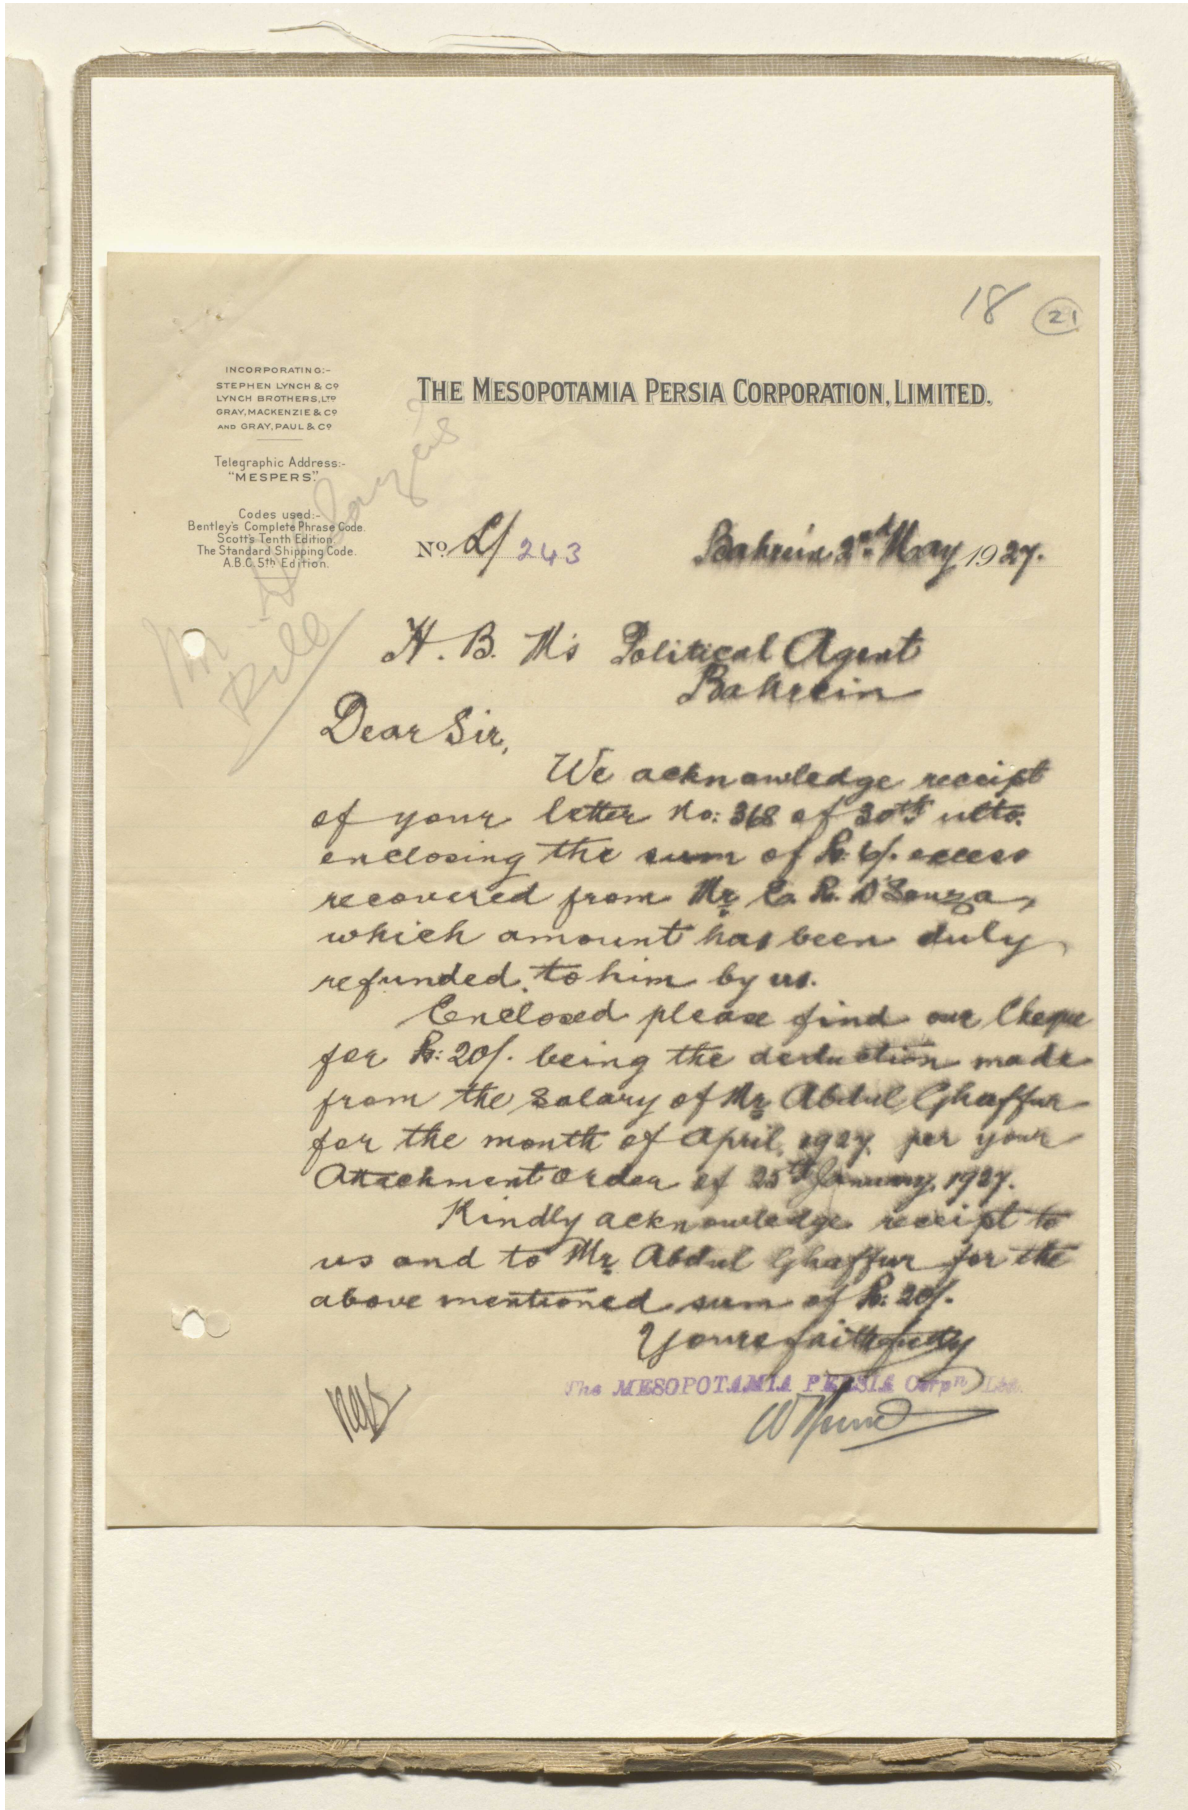 18
21
INCORPORATING:-
STEPHEN LYNCH & Co
LYNCH BROTHERS, LTD
GRAY, MACKENZIE & Co
AND GRAY, PAUL & Co
THE MESOPOTAMIA PERSIA CORPORATION, LIMITED.
Telegraphic Address:-
"MESPERS".
Codes used:-
Bentley's Complete Phrase Code.
Scott's Tenth Edition.
The Standard Shipping Code.
A.B.C. 5th Edition.
No. L/243
Bahrein 2nd May 1927.
H. B. M's Political Agent
Bahrein
Dear Sir,
We acknowledge receipt
of your letter No: 368 of 30th ulto.
enclosing the sum of Rs. 6/. excess
recovered from Mr D'Souza,
which amount has been duly
refunded to him by us.
Enclosed please find our Cheque
for Rs: 20/. being the deduction made
from the Salary of Mr Abdul Ghaffur
for the month of April, 1927, per your
Attachment Order of 25th January, 1927.
Kindly acknowledge receipt to
us and to Mr Abdul Ghaffur for the
above mentioned sum of Rs: 20/.
Yours faithfully
The MESOPOTAMIA PERSIA Corpn Ltd.